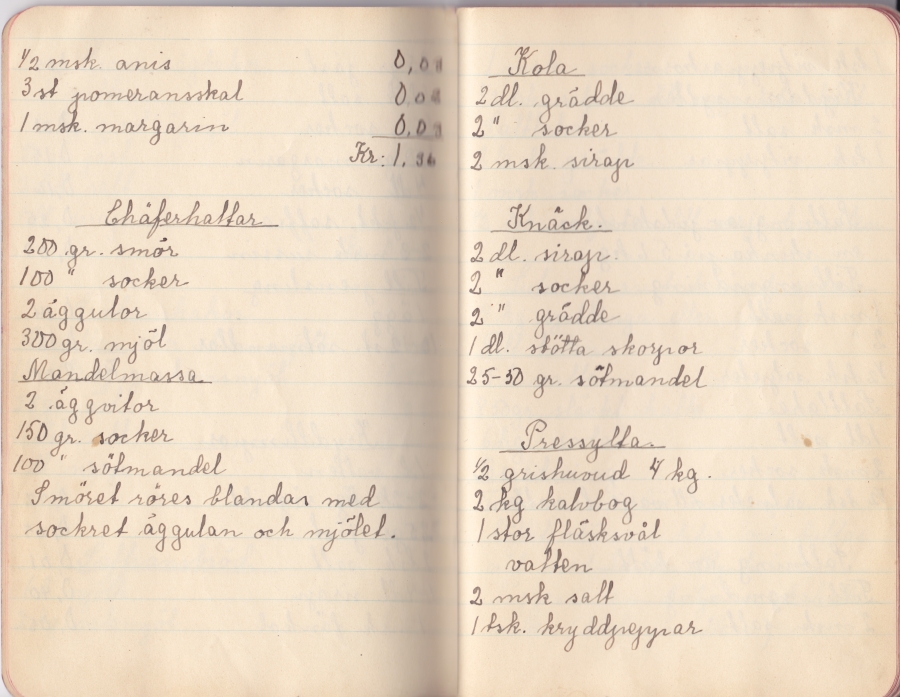 1/2 msk. anis 0,0
3 st pomeransskal 0,0
1 msk. margarin 0,0
Kr: 1.
Chäferhattar
200 gr. smör
100 " socker
2 äggulor
300 gr. mjöl
Mandelmassa
2 äggvitor
150 gr. socker
100 " sötmandel
Smöret röres blandas med
sockret äggulan och mjölet.
Kola
2 dl. grädde
2 " socker
2 msk. sirap
Knäck.
2 dl. sirap.
2 " socker
2 " grädde
1 dl. stötta skorpor
25-30 gr. sötmandel
Pressylta.
1/2 grishuvud 4 kg.
2 kg kalvbog
1 stor fläsksvål
vatten
2 msk salt
1 tsk. kryddpeppar